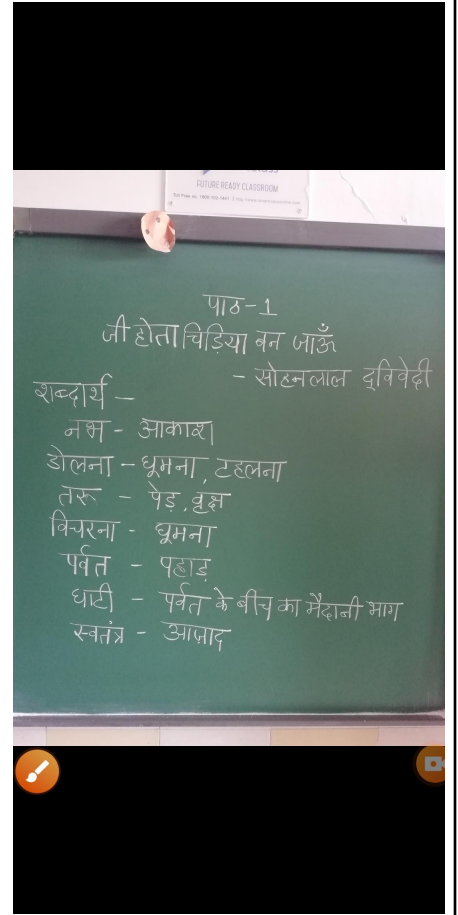 FUTURE READY CLASSROOM
पाठ-1
जी होता चिड़िया बन जाऊँ
- सोहनलाल द्विवेदी
शब्दार्थ -
नभ - आकाश
डोलना - घूमना, टहलना
तरू - पेड़, वृक्ष
विचरना - घूमना
पर्वत - पहाड़
घाटी - पर्वत के बीच का मैदानी भाग
स्वतंत्र - आज़ाद